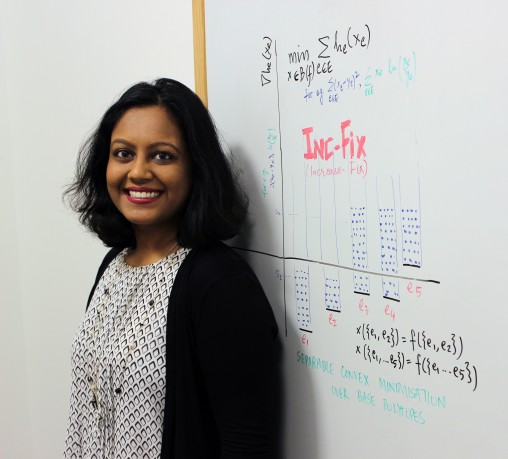 ∇hₑ(xₑ)
min Σ hₑ(xₑ)
x∈B(f) e∈E
for eg
INC-FIX
(INCREASE-FIX)
e₁ e₂ e₃ e₄ e₅
x({e₁,e₂}) = f({e₁,e₂})
x({e₁,...e₅}) = f({e₁...e₅})
SEPARABLE CONVEX MINIMISATION
OVER BASE POLYTOPES